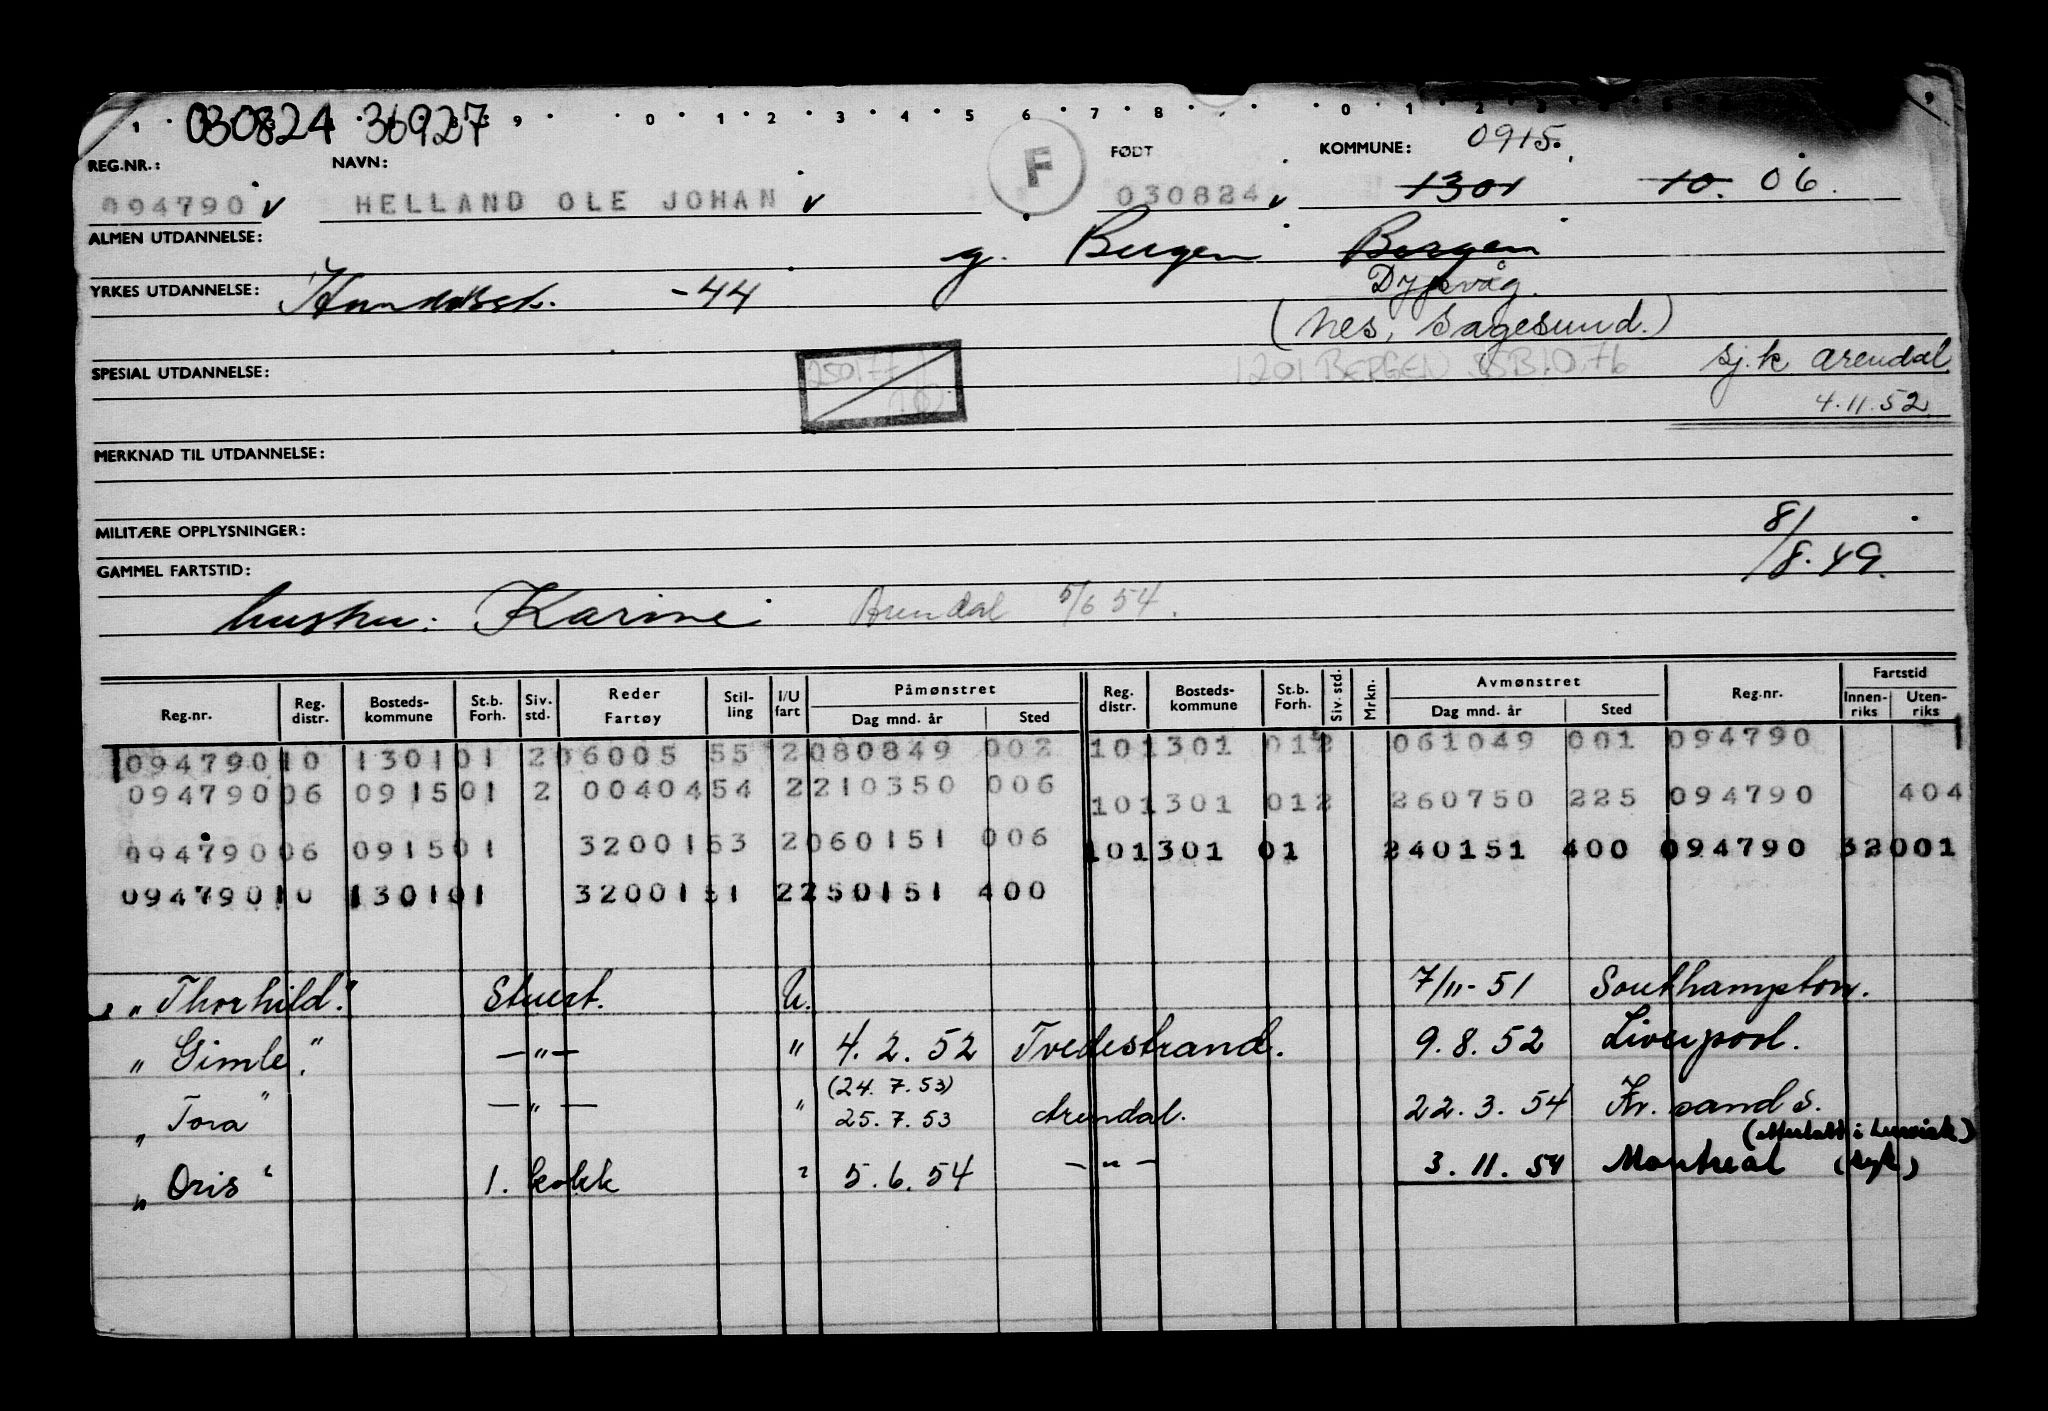 030824 36927
REG.NR.: NAVN: F FØDT KOMMUNE: 0915.
094790 v HELLAND OLE JOHAN v 030824 v 1301 10. 06.
ALMEN UTDANNELSE: g. Bergen Bergen
YRKES UTDANNELSE: Handelssk. -44 Dypvåg.
(Nes, Sagesund.)
SPESIAL UTDANNELSE: 250177 1201 BERGEN SSB10.76 Sj.k Arendal
4.11.52
MERKNAD TIL UTDANNELSE:
MILITÆRE OPPLYSNINGER: 8/
GAMMEL FARTSTID: /8.49.
hustru: Karine Arendal 5/6 54.
Reg.nr. Reg. distr. Bosteds- kommune St.b. Forh. Siv. std. Reder Fartøy Stil- ling I/U fart Påmønstret Dag mnd. år Sted Reg. distr. Bosteds- kommune St.b. Forh. Siv. std. Mrkn. Avmønstret Dag mnd. år Sted Reg.nr. Fartstid Innen- riks Uten- riks
09479010 130101 206005 55 2080849 002 101301 012 061049 001 094790 1
09479006 091501 2 0040454 2210350 006 101301 012 260750 225 094790 404
09479006 091501 3200153 2060151 006 101301 01 240151 400 094790 32001
09479010 130101 3200151 2250151 400
"Thorhild." Stuert. U. 7/11-51 Southampton.
"Gimle." —"— " 4.2.52 Tvedestrand. 9.8.52 Liverpool.
(24.7.53)
"Tora" —"— " 25.7.53 Arendal. 22.3.54 Kr.sand S.
"Oris" 1. kokk " 5.6.54 —"— 3.11.54 Montreal (syk)